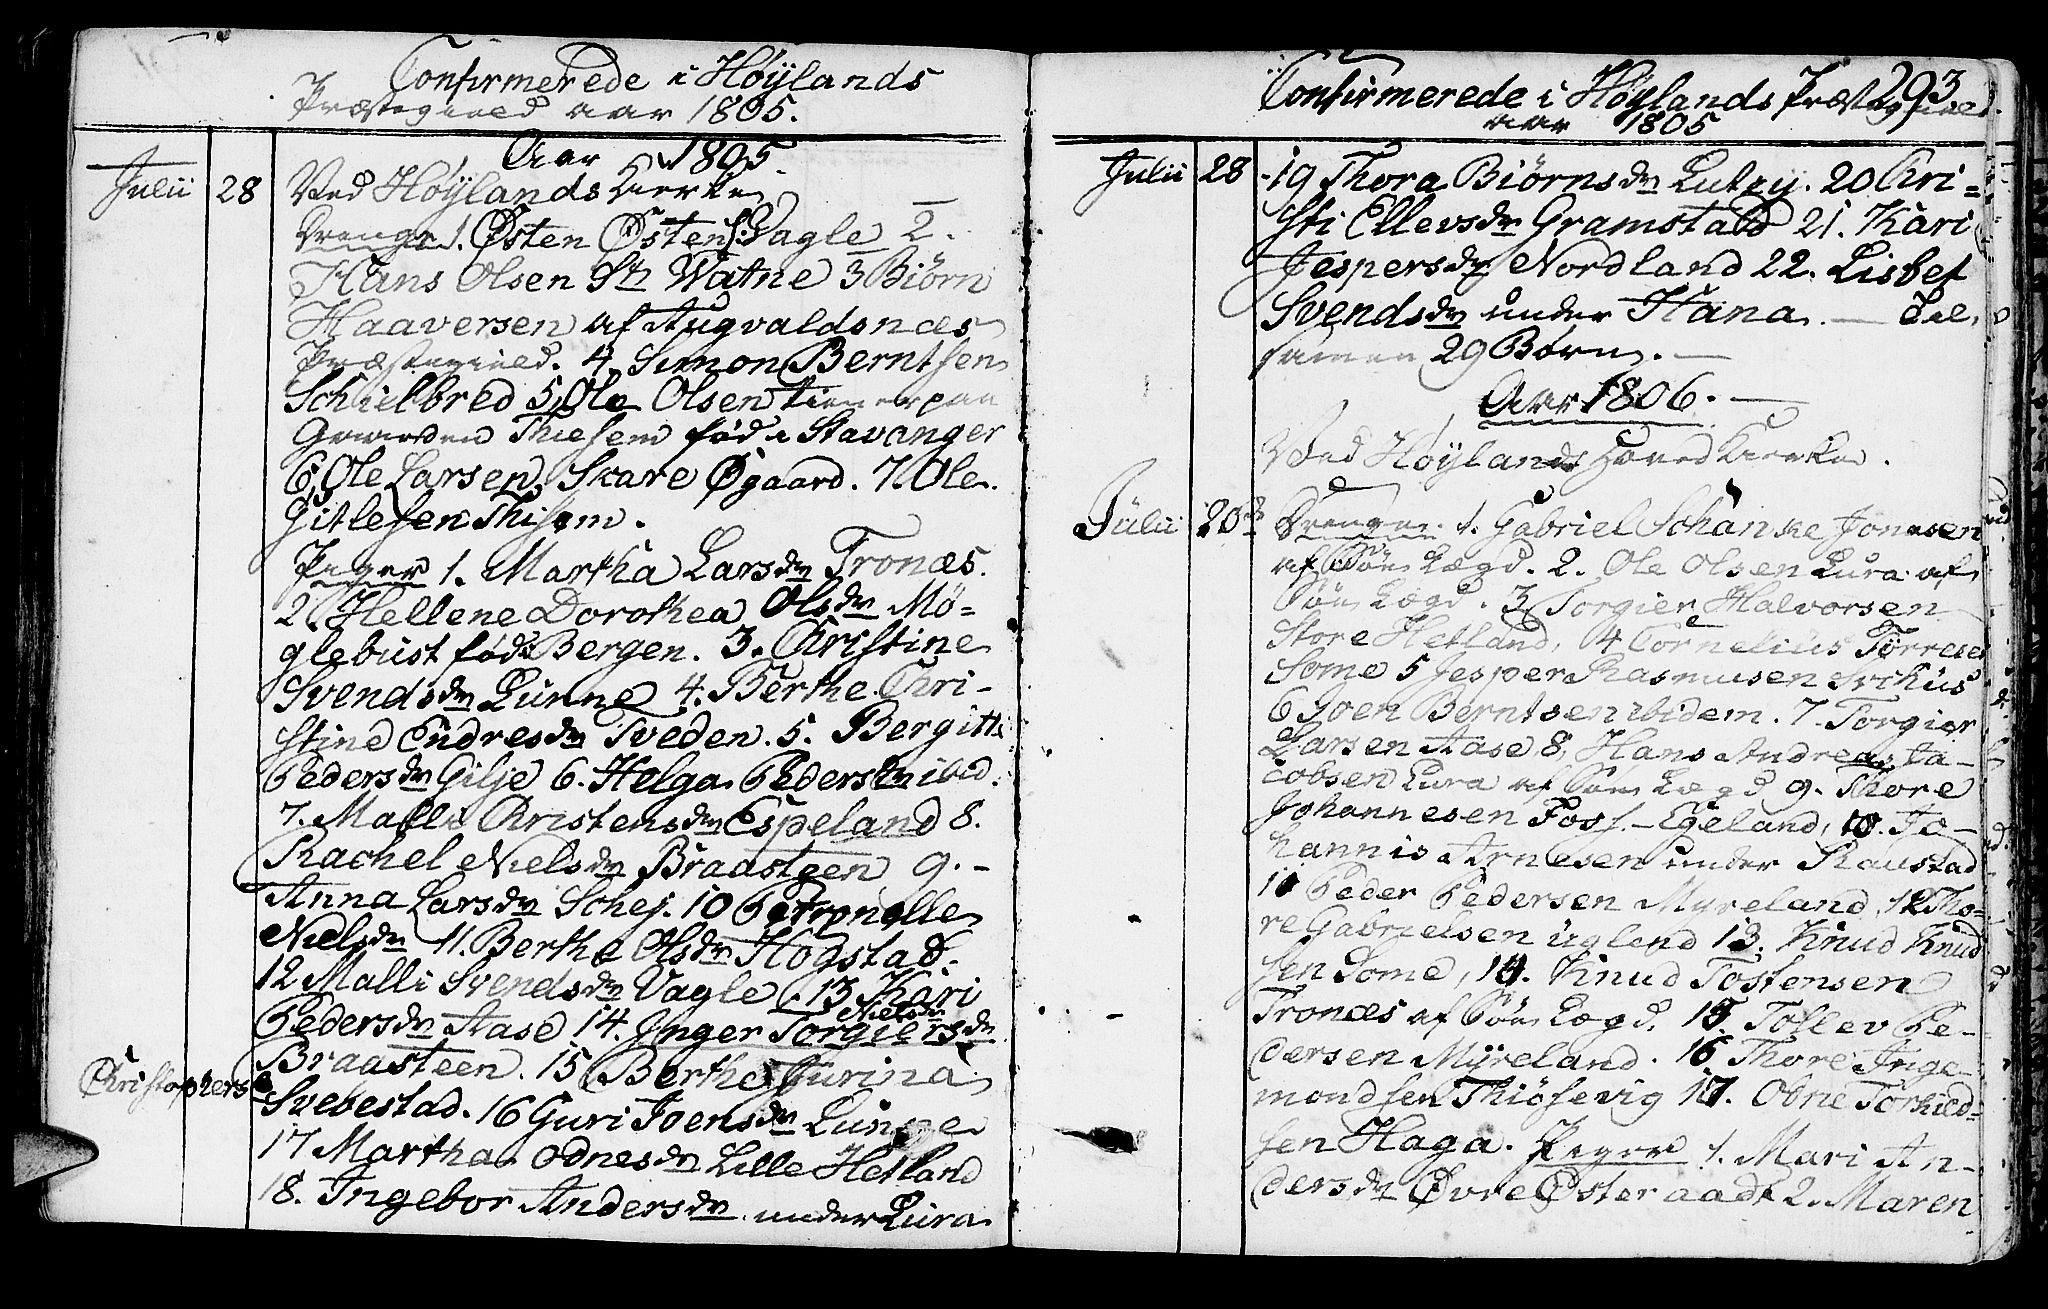 Confirmerede i Høylands
Præstegield aar 1805.
Aar 1805.
Julii 28 Ved Høylands Kierke
Drenge 1. Østen Østens: Vagle 2.
Hans Olsen St: Watne 3 Biørn
Haaversen af Augvaldsnæs
Præstegield. 4. Simon Berntsen
Schielbred 5, Ole Olsen tiener paa
Gaarden Thiesem fød i Stavanger
6, Ole Larsen Skare Øgaard. 7. Ole
Gitlesen Thisem.
Piger 1. Martha Larsdr Tronæs.
2. Hellene Dorothea Olsdr Mø=
glebust fød i Bergen. 3. Christine
Svendsdr Lunne 4. Berthe Chri-
stine Endresdr Tveden. 5. Bergitte
Pedersdr Gilje 6. Helga Pedersdr ibid.
7. Malli Christensdr Espeland 8.
Rachel Nielsdr Braasteen 9. -
Anna Larsdr Schej. 10 Petronelle
Nielsdr 11. Berthe Olsdr Hogstad.
12 Malli Svendsdr Vagle. 13 Kari
Pedersdr Aase 14. Inger Torgiersdr
Nielsdr
Braasteen. 15 Berthe Jurina
Christophers
Svebestad. 16 Guri Joensdr Lunne
17 Martha Odnesdr Lille Hetland
18. Ingebor Andersdr under Lura
293
Confirmerede i Høylands Præstegield.
aar 1805
Julii 28 19 Thora Biørnsdr Lutzy. 20 Chri=
sti Ellevsdr Gramstad 21. Kari
Jespersdr Nordland 22. Lisbet
Svendsdr under Hana. — Til
samen 29 Børn. —
Aar 1806. —
Ved Høylands Hoved Kierke.
Julii 20de Drenge. 1. Gabriel Schanske Jonesen
af Søe Lægd. 2. Ole Olsen Lura af
Søe Lægd. 3 Torgier Halvorsen
Store Hetland, 4 Cornelius Tørresen
Some 5 Jesper Rasmusen Svihus
6 Joen Berntsen ibidem. 7. Torgier
Larsen Aase 8, Hans Andreas Ja-
cobsen Lura af Søe Lægd 9. Thore
Johannesen Foss-Egeland, 10. Jo-
hannis Arnesen under Raustad
11 Peder Pedersen Myreland, 12 Tho=
re Gabrielsen Ugland 13. Knud Knud
sen Some, 14. Knud Tostensen
Tronæs af Søe Lægd, 15. Tollev Pe-
dersen Myreland. 16 Thore Inge-
mondsen Thiøsevig 17. Odne Torkield-
sen Haga. Piger 1. Mari An-
dersdr Øvre Østeraadt 2. Maren